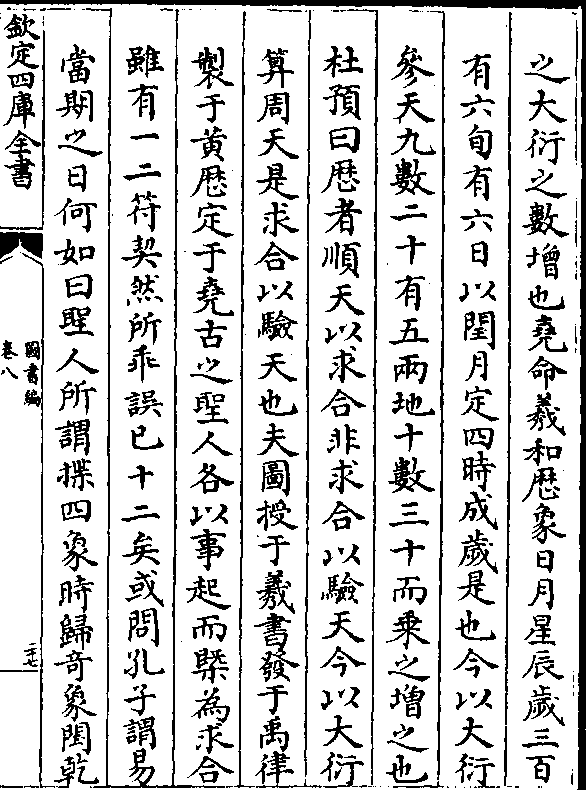 之大衍之數增也堯命羲和厯象日月星辰歲三百
有六旬有六日以閏月定四時成歲是也今以大衍
參天九數二十有五兩地十數三十而乗之增之也
杜預曰厯者順天以求合非求合以驗天今以大衍
算周天是求合以驗天也夫圖授于羲書發于禹律
製于黄厯定于堯古之聖人各以事起而槩為求合
雖有一二符契然所乖誤已十二矣或問孔子謂易
當期之日何如曰聖人所謂揲四象時歸奇象閏乾
欽定四庫全書
圖書編
卷八
二十七